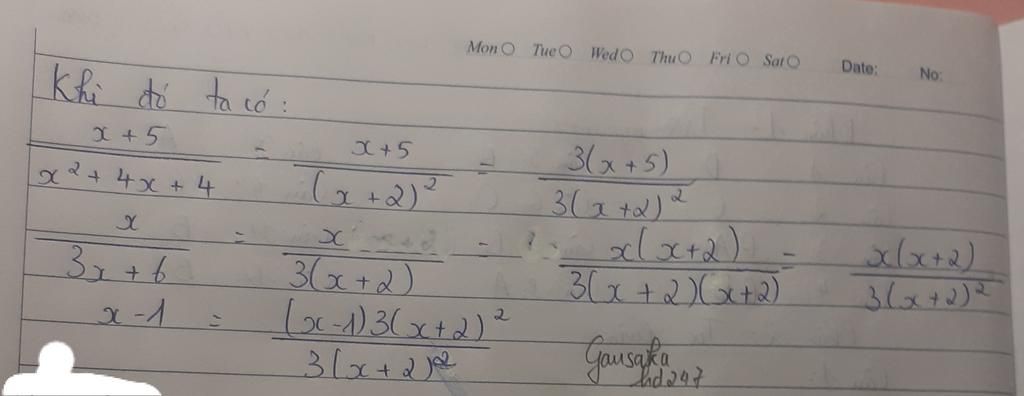 Mon Tue Wed Thu Fri Sat Date: No:
Khi đó ta có:
x + 5 / x² + 4x + 4 = x+5 / (x + 2)² = 3(x + 5) / 3(x +2)²
x / 3x + 6 = x / 3(x + 2) = x(x+2) / 3(x + 2)(x+2) = x(x+2) / 3(x +2)²
x -1 = (x-1)3(x+2)² / 3(x + 2)²
Gausaka
hd247